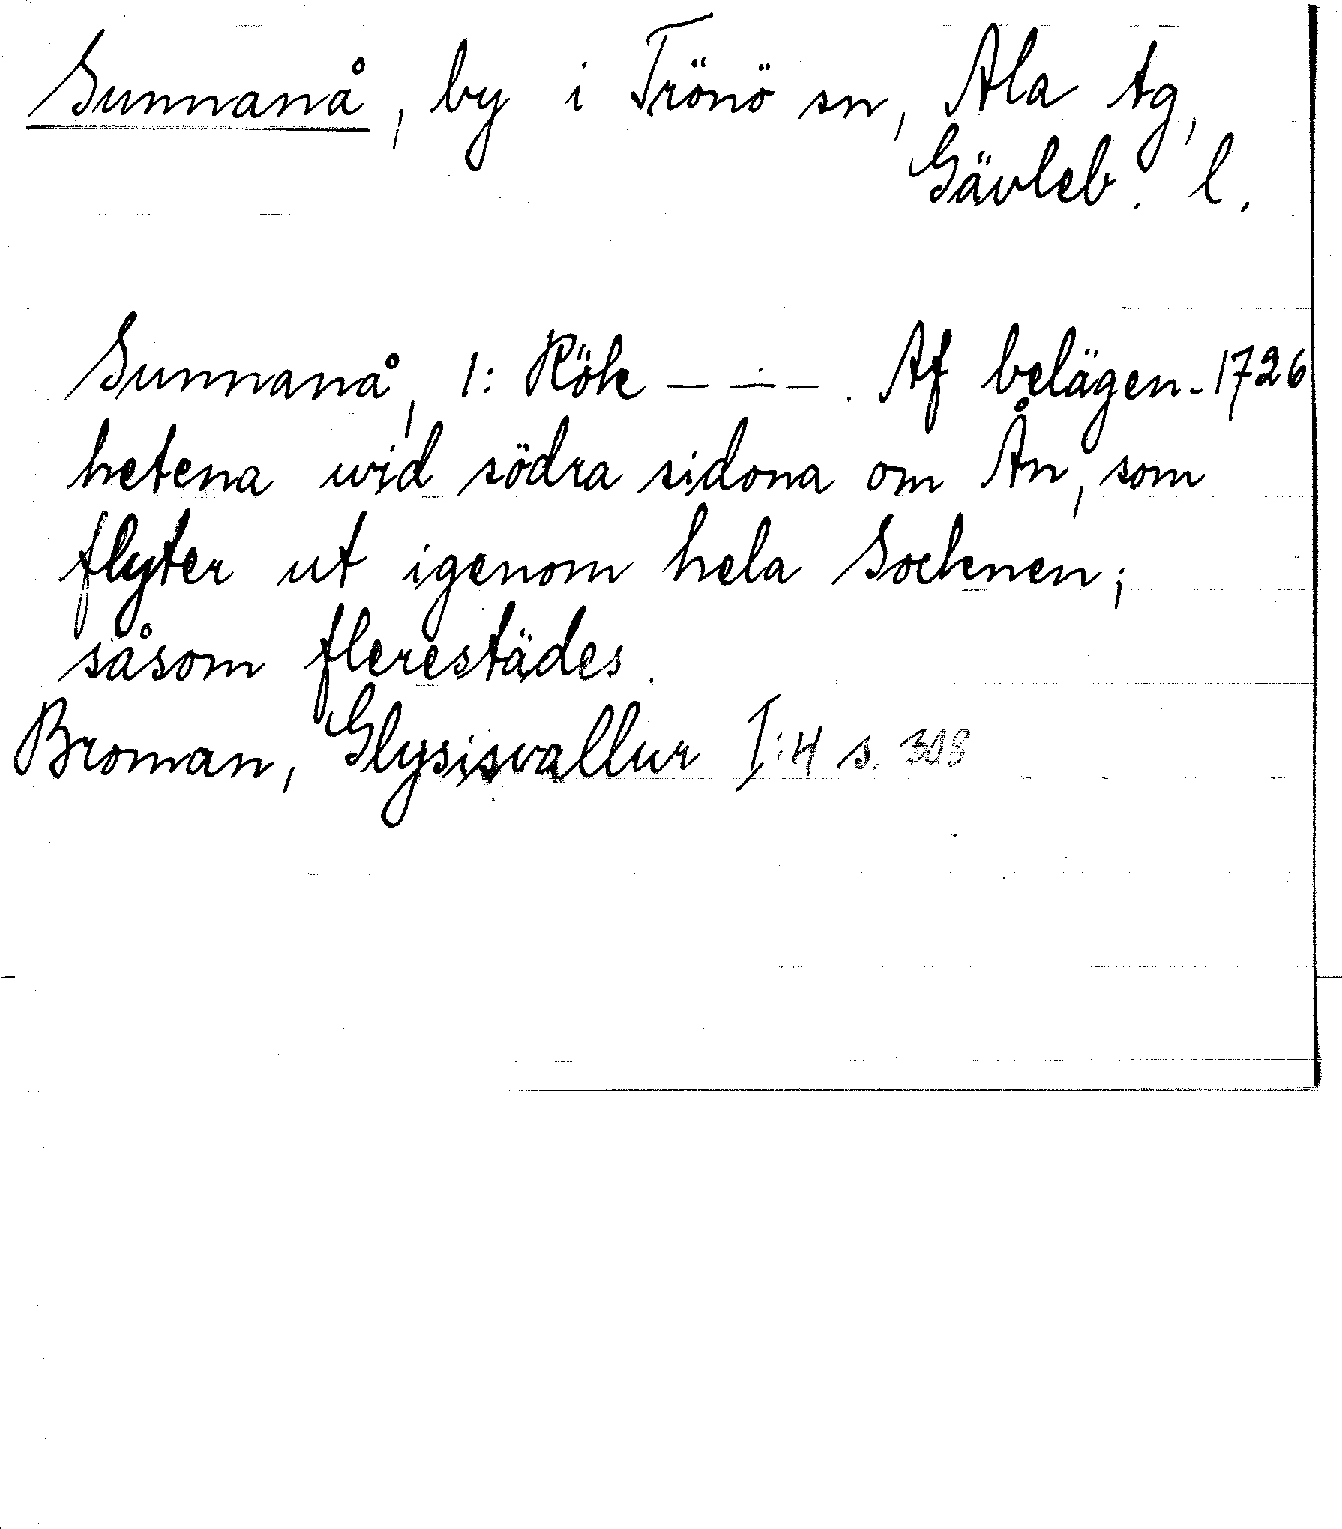 Sunnanå, by i Trönö sn, Ala tg,
Gävleb. l.
Sunnanå, 1: Rök — — —. Af belägen- 1726
hetena wid södra sidona om Ån, som
flyter ut igenom hela Socknen;
såsom flerestädes.
Broman, Glysisvallur I:4 s. 308